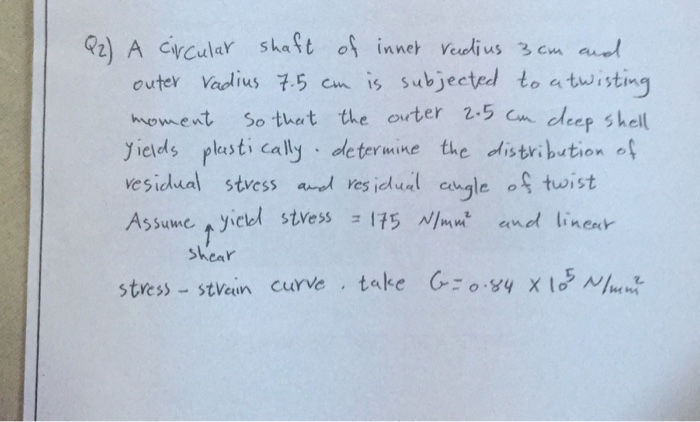 Q2) A circular shaft of inner radius 3 cm and
outer radius 7.5 cm is subjected to a twisting
moment so that the outer 2.5 cm deep shell
yields plastically. determine the distribution of
residual stress and residual angle of twist
Assume shear yield stress = 175 N/mm² and linear
stress - strain curve. take G = 0.84 × 10⁵ N/mm²